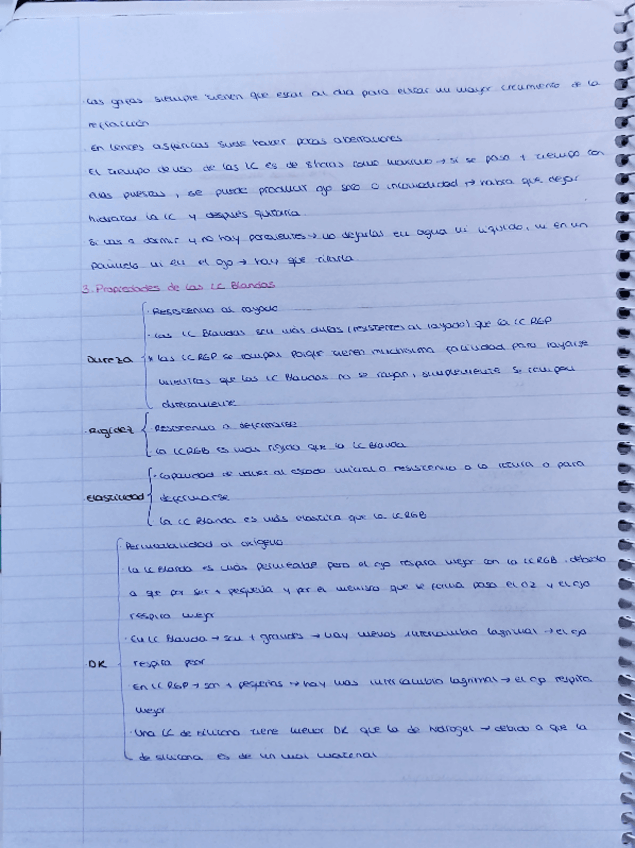 ·Las gafas siempre tienen que estar al dia para evitar un mayor crecimiento de la
refracción
·En lentes asfericas suele haver pocas aberraciones
El tiempo de uso de las LC es de 8 horas como maximo → si se pasa + tiempo con
ellas puestas, se puede producir ojo seco o incomodidad → habra que dejar
hidratar la LC y después quitarla
Si vas a dormir y no hay portalentes → no dejarlas en agua ni liquido, ni en un
pañuelo ni en el ojo → hay que tirarla
3. Propiedades de las LC Blandas
· Resistencia al rayado
· Las LC Blandas son más duras (resistentes al rayado) que la LC RGP
Dureza * las LC RGP se rompen porque tienen muchisima facilidad para rayarse
mientras que las LC Blandas no se rayan, simplemente se rompen
directamente
·Rigidez Resistencia a deformarse
La LC RGB es mas rigida que la LC Blanda
Elasticidad · Capacidad de volver al estado inicial o resistencia a la rotura o para
deformarse
La LC Blanda es más elastica que la LC RGB
·Permeabilidad al oxigeno
·La LC Blanda es más permeable pero el ojo respira mejor con la LC RGB debido
a que por ser + pequeña y por el menisco que se forma pasa el O2 y el ojo
respira mejor
· En LC Blanda → son + grandes → hay menos intercambio lagrimal → el ojo
·DK respira peor
En LC RGP → son + pequeñas → hay mas intercambio lagrimal → el ojo respira
mejor
· Una LC de silicona tiene menor DK que la de hidrogel → debido a que la
de silicona es de un mal material